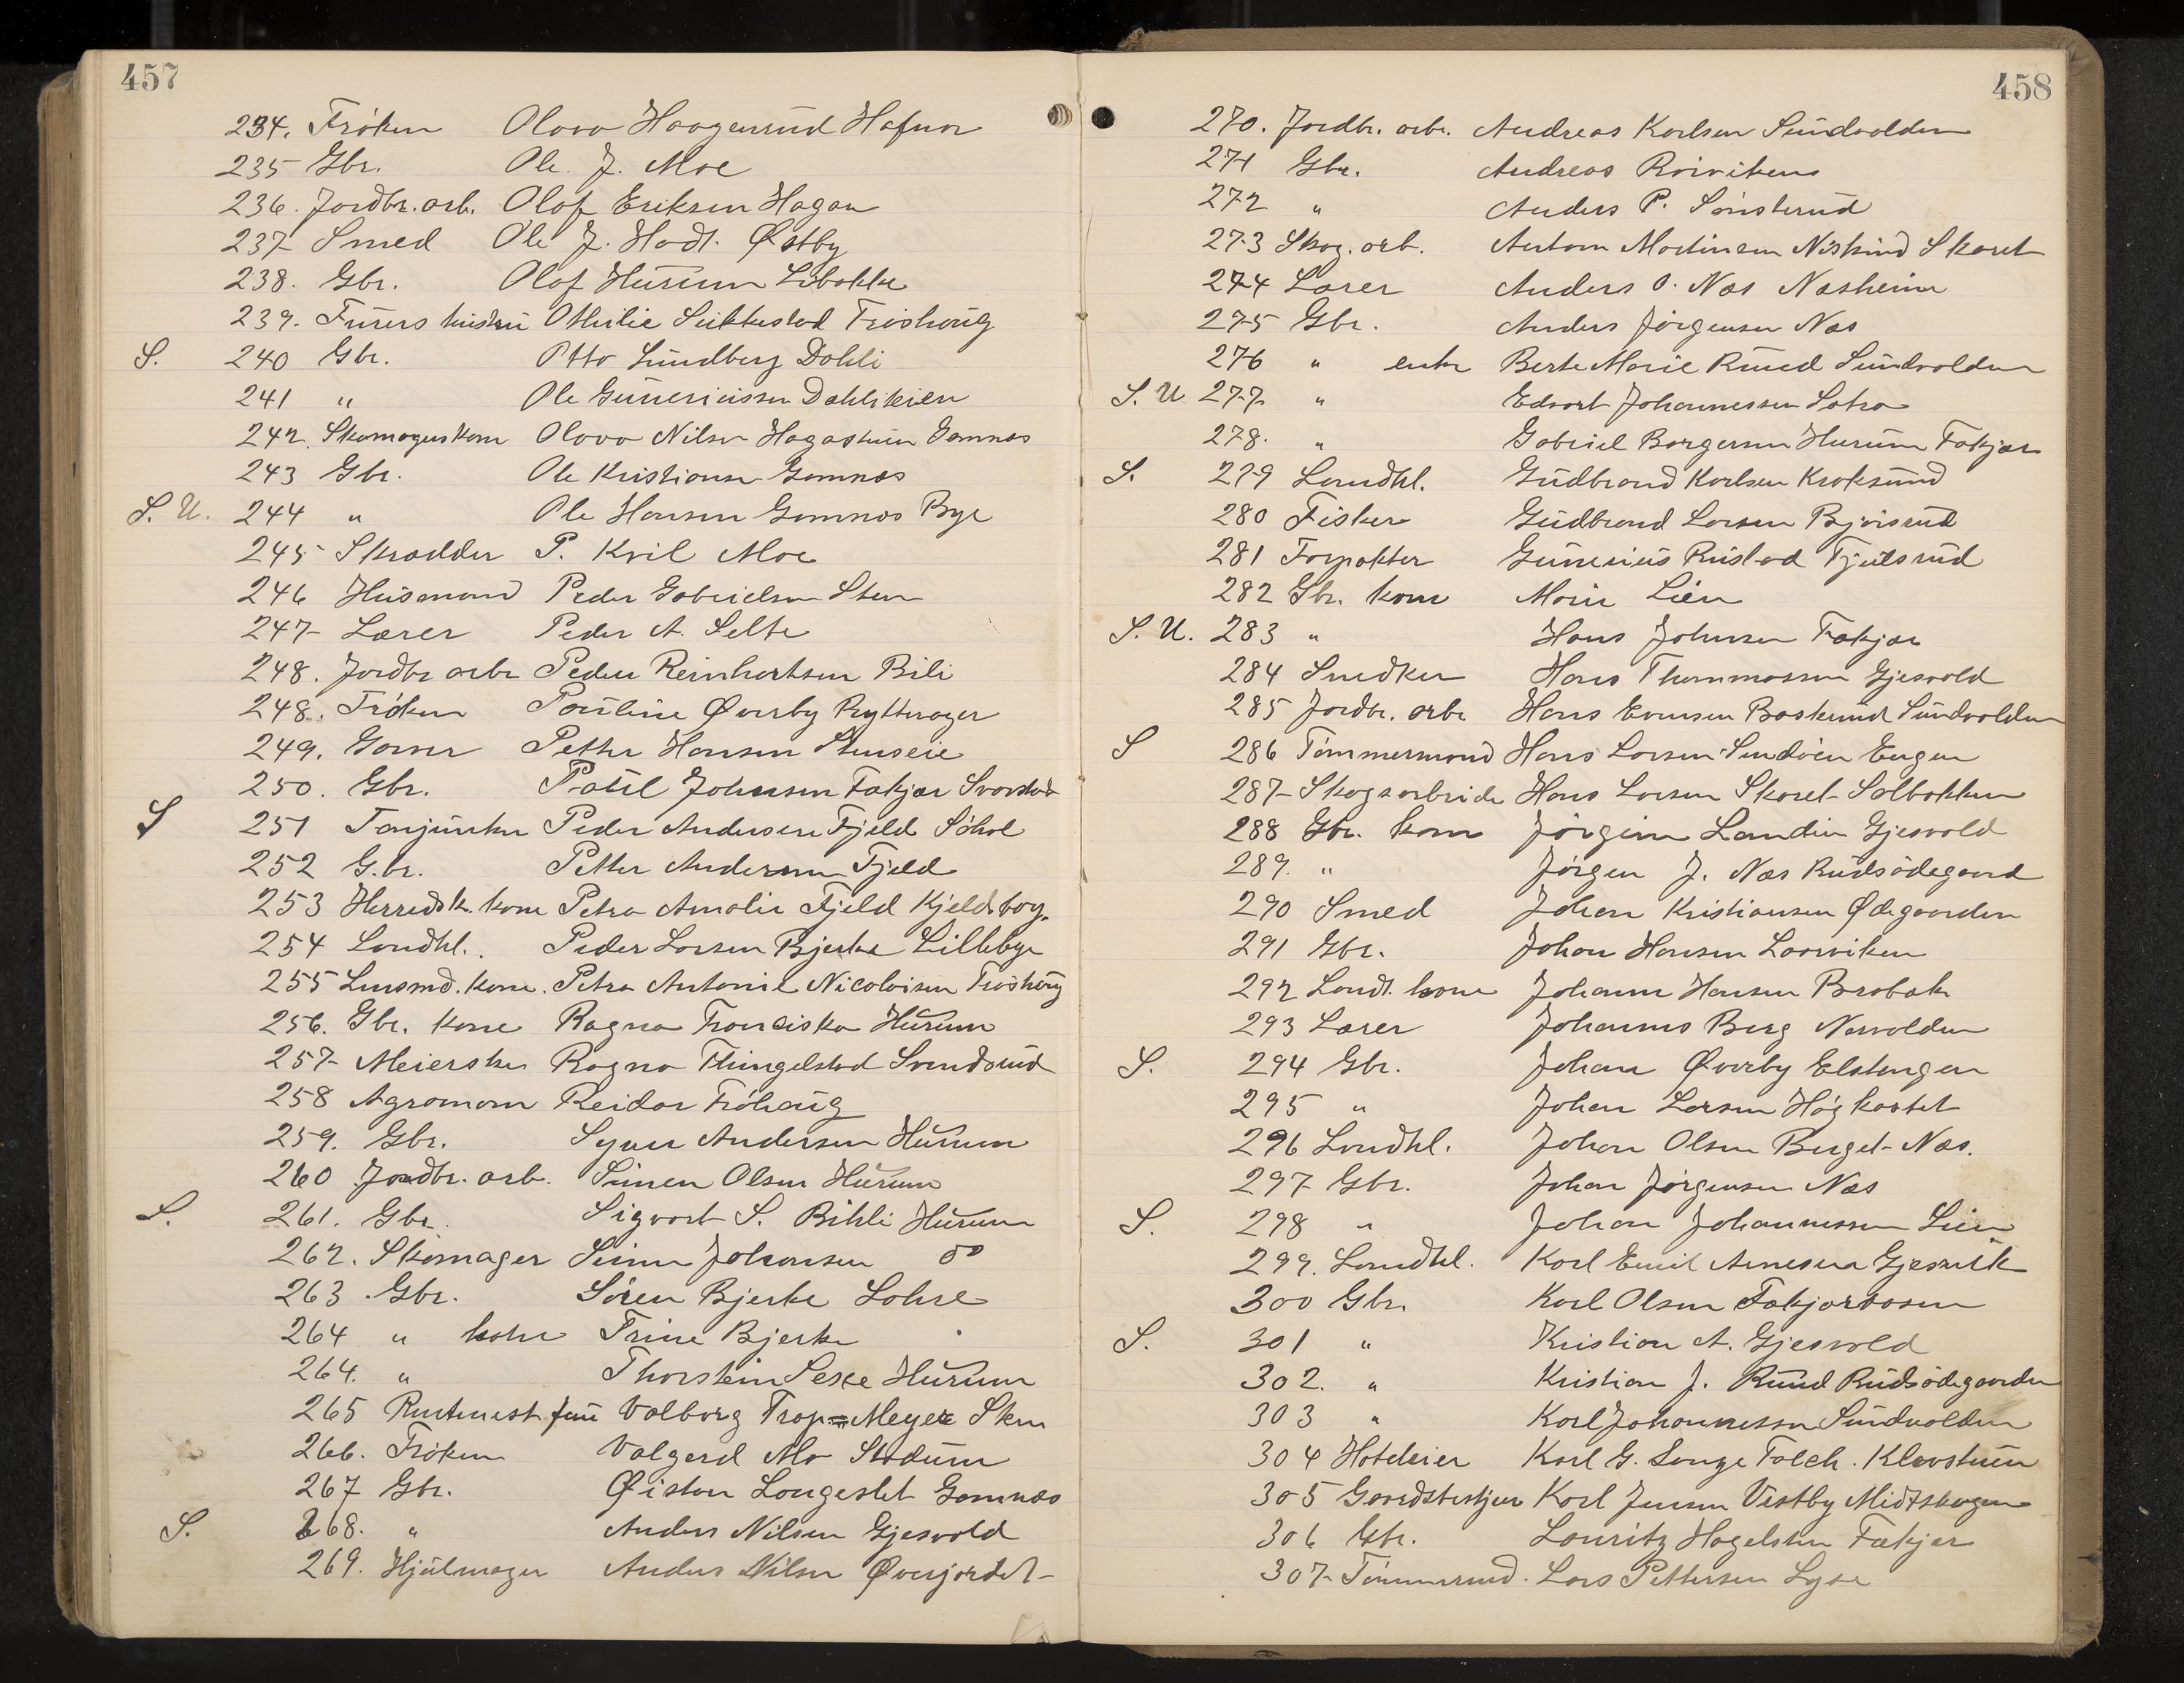 457
234. Frøken Olava Haagensrud Hafnor
235 Gbr. Ole J. Moe
236. Jordbr. arb. Olaf Eriksen Hagan
237 Smed Ole J. Hadt. Østby
238. Gbr. Olaf Hurum Libakke
239. Furers hustru Othilie Sukkestad Frøshoug
S. 240 Gbr. Otto Lundberg Dahli
241 " Ole Guneriussen Dahlikeien
242. Skomagerkone Olava Nilsen Hagastuen Gomnæs
243 Gbr. Ole Kristiansen Gomnæs
S. U. 244 " Ole Hansen Gomnæs Bye
245 Skrædder P. Kvil Moe
246 Husmand Peder Gabrielsen Sten
247 Lærer Peder A. Selte
248. Jordbr arbr Peder Reinhartsen Bili
248. Frøken Pauline Øverby Rytterager
249. Garver Petter Hansen Stenseie
250. Gbr. Paul Johnsen Fækjær Svarstad
S 251 Fanjunker Peder Andersen Fjeld Søhol
252 G.br. Petter Andersen Fjeld
253 Herredsk. kone Petra Amalie Fjeld Kjeldsbog.
254 Landhl. Peder Larsen Bjerke Lillebye
255 Lensmd. kone. Petra Antonie Nicolaisen Frøshoug
256. Gbr. kone Ragna Franciska Hurum
257 Meierske Ragna Thingelstad Svendsrud
258 Agronom Reidar Frøhaug
259. Gbr. Syver Andersen Hurum
260 Jordbr. arb. Simen Olsen Hurum
S. 261. Gbr. Sigvart S. Bihli Hurum
262. Skomager Simen Johansen do
263 Gbr. Søren Bjerke Lohre
264 " kone Trine Bjerke "
264. " Thorstein Sexe Hurum
265 Rentmest frue Valborg Trap=Meyer Sten
266. Frøken Valgerd Mo Stadum
267 Gbr. Øistein Langeslet Gomnæs
S. 268. " Anders Nilsen Gjesvold
269. Hjulmager Anders Nilsen Øverjordet
458
270. Jordbr. arbr. Andreas Karlsen Sundvolden
271 Gbr. Andreas Rørviken
272 " Anders P. Sønsterud
273 Skog. arb. Anton Martinsen Niskind Skaret
274 Lærer Anders O. Næs Næsheim
275 Gbr. Anders Jørgensen Næs
276 " enke Berte Marie Ruud Sundvolden
S. U 277 " Edvart Johannessen Sætra
278. " Gabriel Borgersen Hurum Fækjær
S. 279 Landhl. Gudbrand Karlsen Kroksund
280 Fisker Gudbrand Larsen Bjørsrud
281 Forpakter Gunerius Rustad Fjulsrud
282 Gbr. kone Marie Lien
S. U. 283 " Hans Johnsen Fækjær
284 Snedker Hans Thommassen Gjesvold
285 Jordbr. arbr Hans Evensen Baskerud Sundvolden
S 286 Tømmermand Hans Larsen Sundøen Engen
287 Skogsarbeider Hans Larsen Skaret Solbakken
288 Gbr. kone Jørgine Landin Gjesvold
289. " Jørgen J. Næs Rudsødegaard
290 Smed Johan Kristiansen Ødegaarden
291 Gbr. Johan Hansen Laarviken
292 Landh. kone Johanne Hansen Brobak
293 Lærer Johannes Berg Nervolden
S. 294 Gbr. Johan Øverby Elstangen
295 " Johan Larsen Høgkastet
296 Landhl. Johan Olsen Berget Næs.
297 Gbr. Johan Jørgensen Næs
S. 298 " Johan Johannessen Lien
299. Landhl. Karl Emil Arnesen Gjesvik
300 Gbr. Karl Olsen Fækjærbraaten
S. 301 " Kristian A. Gjesvold
302. " Kristian J. Ruud Rudsødegaarden
303 " Karl Johannessen Sundvolden
304 Hoteleier Karl G. Lange Falch. Klevstuen
305 Gaardsbestyrer Karl Jensen Vestby Midtskogen
306 Gbr. Lauritz Hagelsten Fækjær
307 Tømmermd. Lars Pettersen Lyse